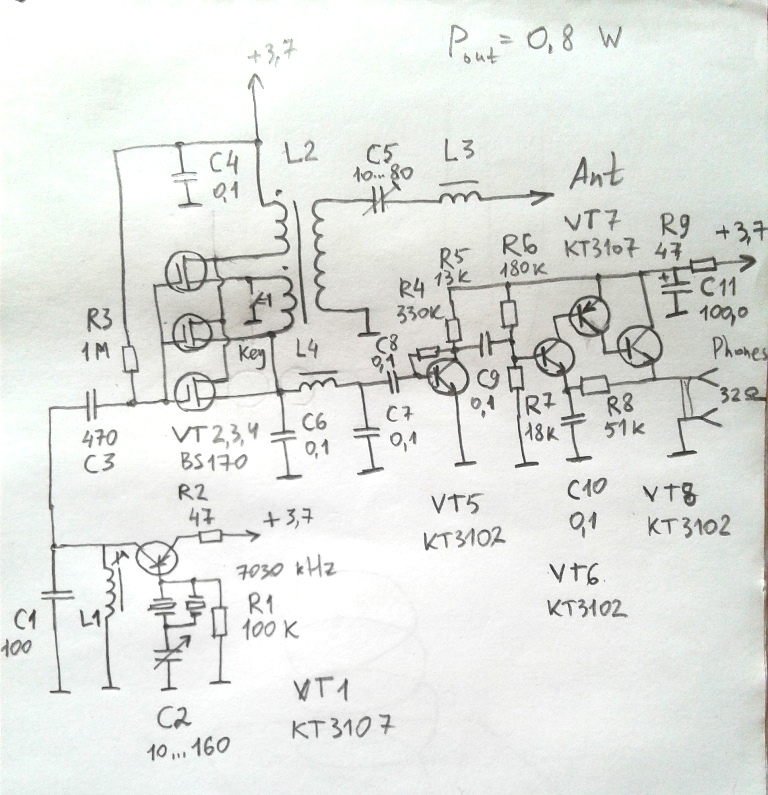 P out = 0,8 W
+3,7
C4
0,1
L2
C5
10...80
L3
Ant
VT7
KT3107
R9
47
+3,7
C11
100,0
R6
180K
R5
13K
R4
330K
C8
0,1
R3
1M
Key
L4
C9
0,1
Phones
32Ω
470
C3
VT 2,3,4
BS170
C6
0,1
C7
0,1
R7
18K
R8
51K
R2
47
+3,7
VT5
KT3102
C10
0,1
VT8
KT3102
VT6
KT3102
7030 kHz
C1
100
L1
R1
100 K
C2
10...160
VT1
KT3107